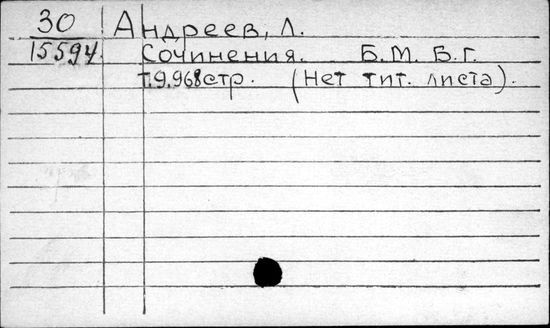 30 Андреев, Л.
15594 Сочинения. Б.М. Б.Г.
т.9.968стр. (Нет тит. листа).